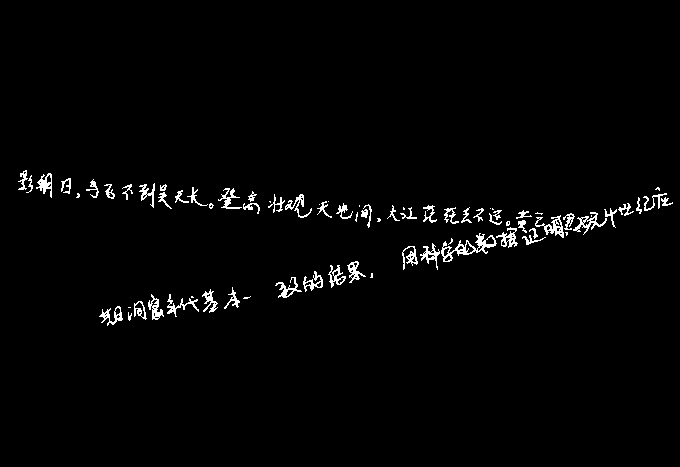 影朝日，鸟飞不到吴天长。登高壮观天地间，大江茫茫去不还。黄云
期洞窟年代基本一致的结果，用科学的数据证明